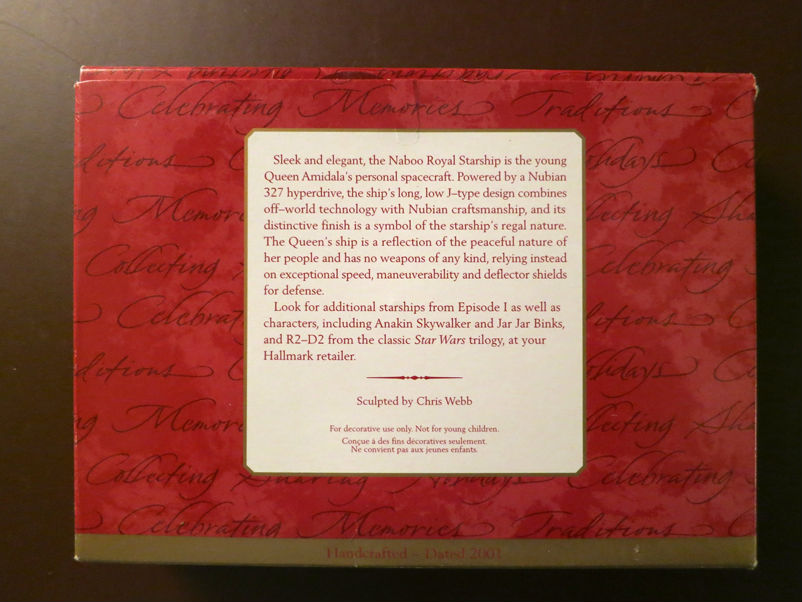 Celebrating Memories Traditions
Sleek and elegant, the Naboo Royal Starship is the young
Queen Amidala's personal spacecraft. Powered by a Nubian
327 hyperdrive, the ship's long, low J–type design combines
off–world technology with Nubian craftsmanship, and its
distinctive finish is a symbol of the starship's regal nature.
The Queen's ship is a reflection of the peaceful nature of
her people and has no weapons of any kind, relying instead
on exceptional speed, maneuverability and deflector shields
for defense.
Look for additional starships from Episode I as well as
characters, including Anakin Skywalker and Jar Jar Binks,
and R2–D2 from the classic Star Wars trilogy, at your
Hallmark retailer.
Sculpted by Chris Webb
For decorative use only. Not for young children.
Conçue à des fins décoratives seulement.
Ne convient pas aux jeunes enfants.
Collecting
Celebrating
Collecting Sharing Holidays Celebrating
Celebrating Memories Traditions
Handcrafted – Dated 2001